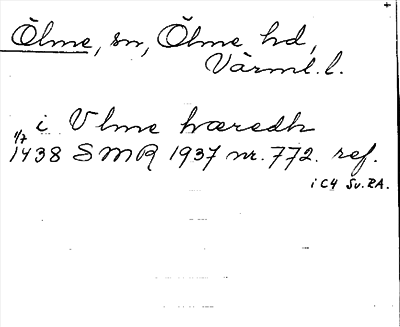 Ölme, sn, Ölme hd,
Värml. l.
i Vlme hæredh
1/7
1438 SMR 1937 nr. 772. ref.
i C4 Sv. RA.